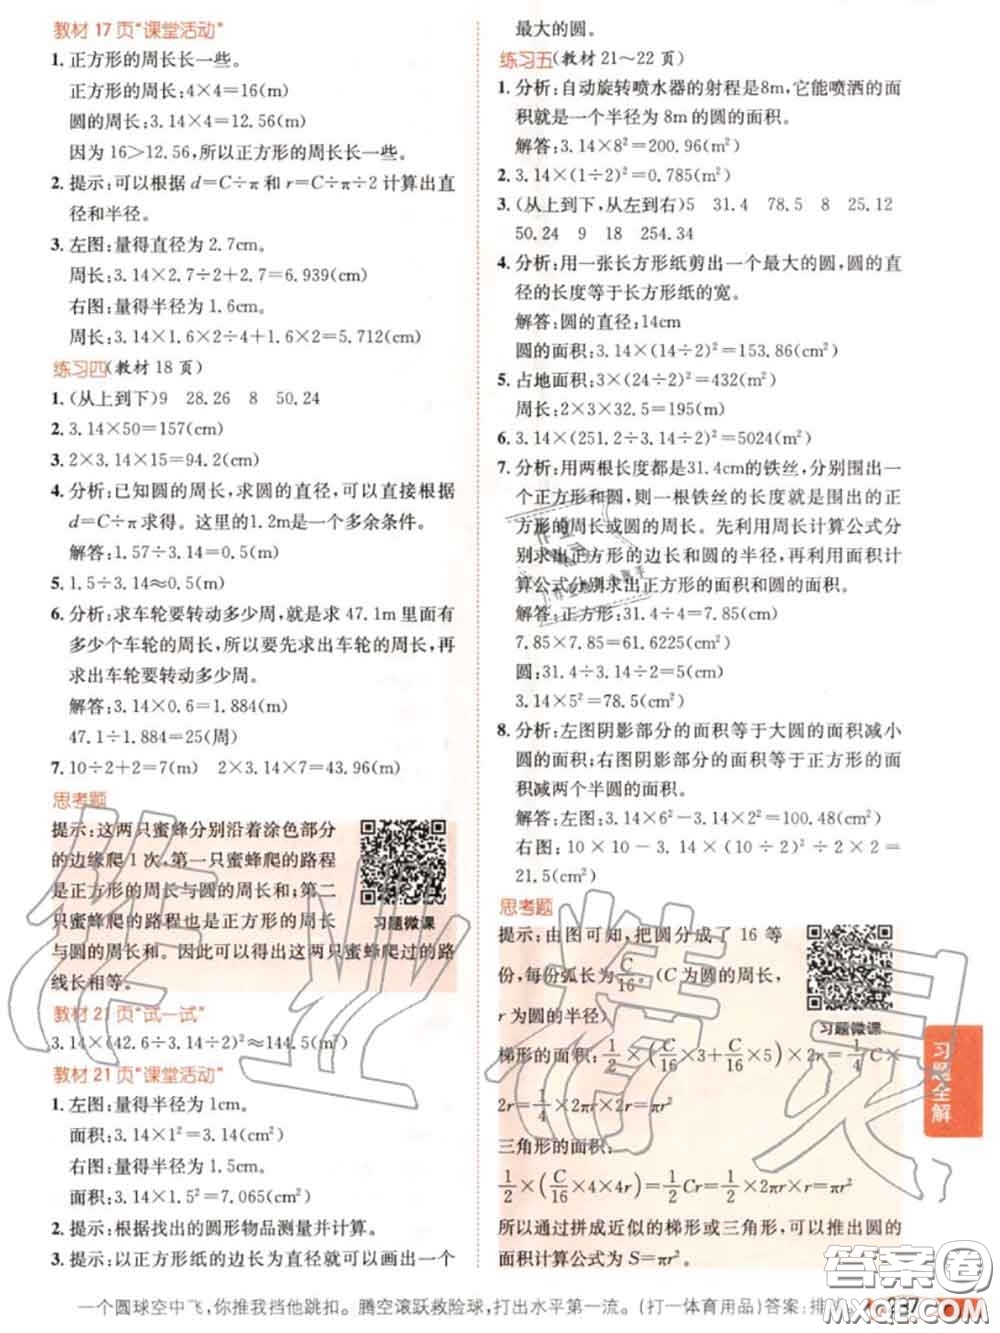 教材 17 页“课堂活动”
1. 正方形的周长长一些。
正方形的周长:4×4=16(m)
圆的周长:3.14×4=12.56(m)
因为 16>12.56,所以正方形的周长长一些。
2. 提示:可以根据 d=C÷π 和 r=C÷π÷2 计算出直
径和半径。
3. 左图:量得直径为 2.7cm。
周长:3.14×2.7÷2+2.7=6.939(cm)
右图:量得半径为 1.6cm。
周长:3.14×1.6×2÷4+1.6×2=5.712(cm)
练习四(教材 18 页)
1. (从上到下)9 28.26 8 50.24
2. 3.14×50=157(cm)
3. 2×3.14×15=94.2(cm)
4. 分析:已知圆的周长,求圆的直径,可以直接根据
d=C÷π求得。这里的1.2m是一个多余条件。
解答:1.57÷3.14=0.5(m)
5. 1.5÷3.14≈0.5(m)
6. 分析:求车轮要转动多少周,就是求 47.1m 里面有
多少个车轮的周长,所以要先求出车轮的周长,再
求出车轮要转动多少周。
解答:3.14×0.6=1.884(m)
47.1÷1.884=25(周)
7. 10÷2+2=7(m) 2×3.14×7=43.96(m)
思考题
提示:这两只蜜蜂分别沿着涂色部分
的边缘爬 1 次,第一只蜜蜂爬的路程
是正方形的周长与圆的周长和;第二
只蜜蜂爬的路程也是正方形的周长
与圆的周长和。因此可以得出这两只蜜蜂爬过的路
线长相等。
习题微课
教材 21 页“试一试”
3.14×(42.6÷3.14÷2)²≈144.5(m²)
教材 21 页“课堂活动”
1. 左图:量得半径为 1cm。
面积:3.14×1²=3.14(cm²)
右图:量得半径为 1.5cm。
面积:3.14×1.5²=7.065(cm²)
2. 提示:根据找出的圆形物品测量并计算。
3. 提示:以正方形纸的边长为直径就可以画出一个
最大的圆。
练习五(教材 21～22 页)
1. 分析:自动旋转喷水器的射程是8m,它能喷洒的面
积就是一个半径为 8m 的圆的面积。
解答:3.14×8²=200.96(m²)
2. 3.14×(1÷2)²=0.785(m²)
3. (从上到下,从左到右)5 31.4 78.5 8 25.12
50.24 9 18 254.34
4. 分析:用一张长方形纸剪出一个最大的圆,圆的直
径的长度等于长方形纸的宽。
解答:圆的直径:14cm
圆的面积:3.14×(14÷2)²=153.86(cm²)
5. 占地面积:3×(24÷2)²=432(m²)
周长:2×3×32.5=195(m)
6. 3.14×(251.2÷3.14÷2)²=5024(m²)
7. 分析:用两根长度都是31.4cm的铁丝,分别围出一
个正方形和圆,则一根铁丝的长度就是围出的正
方形的周长或圆的周长。先利用周长计算公式分
别求出正方形的边长和圆的半径,再利用面积计
算公式分别求出正方形的面积和圆的面积。
解答:正方形:31.4÷4=7.85(cm)
7.85×7.85=61.6225(cm²)
圆:31.4÷3.14÷2=5(cm)
3.14×5²=78.5(cm²)
8. 分析:左图阴影部分的面积等于大圆的面积减小
圆的面积;右图阴影部分的面积等于正方形的面
积减两个半圆的面积。
解答:左图:3.14×6²-3.14×2²=100.48(cm²)
右图:10×10-3.14×(10÷2)²÷2×2=
21.5(cm²)
思考题
提示:由图可知,把圆分成了 16 等
份,每份弧长为C/16。(C 为圆的周长,
r 为圆的半径)
习题微课
梯形的面积:1/2×(C/16×3+C/16×5)×2r=1/4C×
2r=1/4×2πr×2r=πr²
三角形的面积:
1/2×(C/16×4×4r)=1/2Cr=1/2×2πr×r=πr²
所以通过拼成近似的梯形或三角形,可以推出圆的
面积计算公式为 S=πr²。
习题全解
一个圆球空中飞,你推我挡他跳扣。腾空滚跃救险球,打出水平第一流。(打一体育用品)答案:排
作业精灵
答案圈